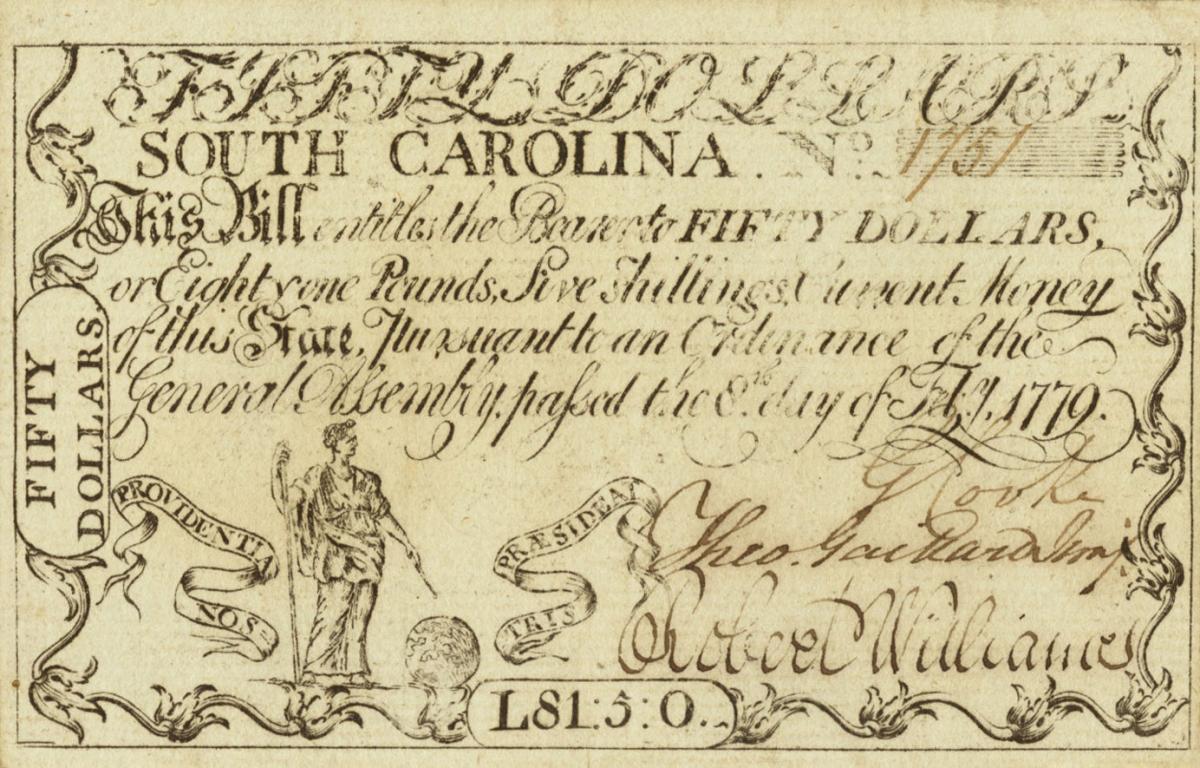 FIFTY DOLLARS
SOUTH CAROLINA. No. 1751
This Bill entitles the Bearer to FIFTY DOLLARS,
or Eighty one Pounds, Five Shillings, Current Money
of this State, Pursuant to an Ordinance of the
General Assembly, passed the 8th. day of Feby. 1779.
FIFTY
DOLLARS.
PROVIDENTIA
NOS-
PRÆSIDENT
TRIS
G Cooke
Theo. Gaillard Junr.
Robert Williams
L81:5:0.